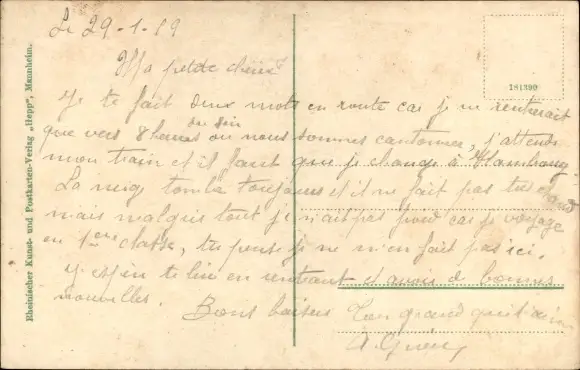 Le 29-1-19
Ma petite chérie
Je te fait deux mots en route car je ne rentrerait
que vers 8 heures du soir ou nous sommes cantonner, j'attends
mon train et il faut que je change à Hombourg.
La neig tombe toujours et il ne fait pas très chaud
mais malgré tout je n'ait pas froid car je voyage
en 1ère classe, tu pense je ne m'en fait pas ici.
J'espère te lire en rentrant et avoir de bonnes
nouvelles. Bons baisers Ton grand
A.
181390
Rheinischer Kunst- und Postkarten-Verlag „Hepp", Mannheim.